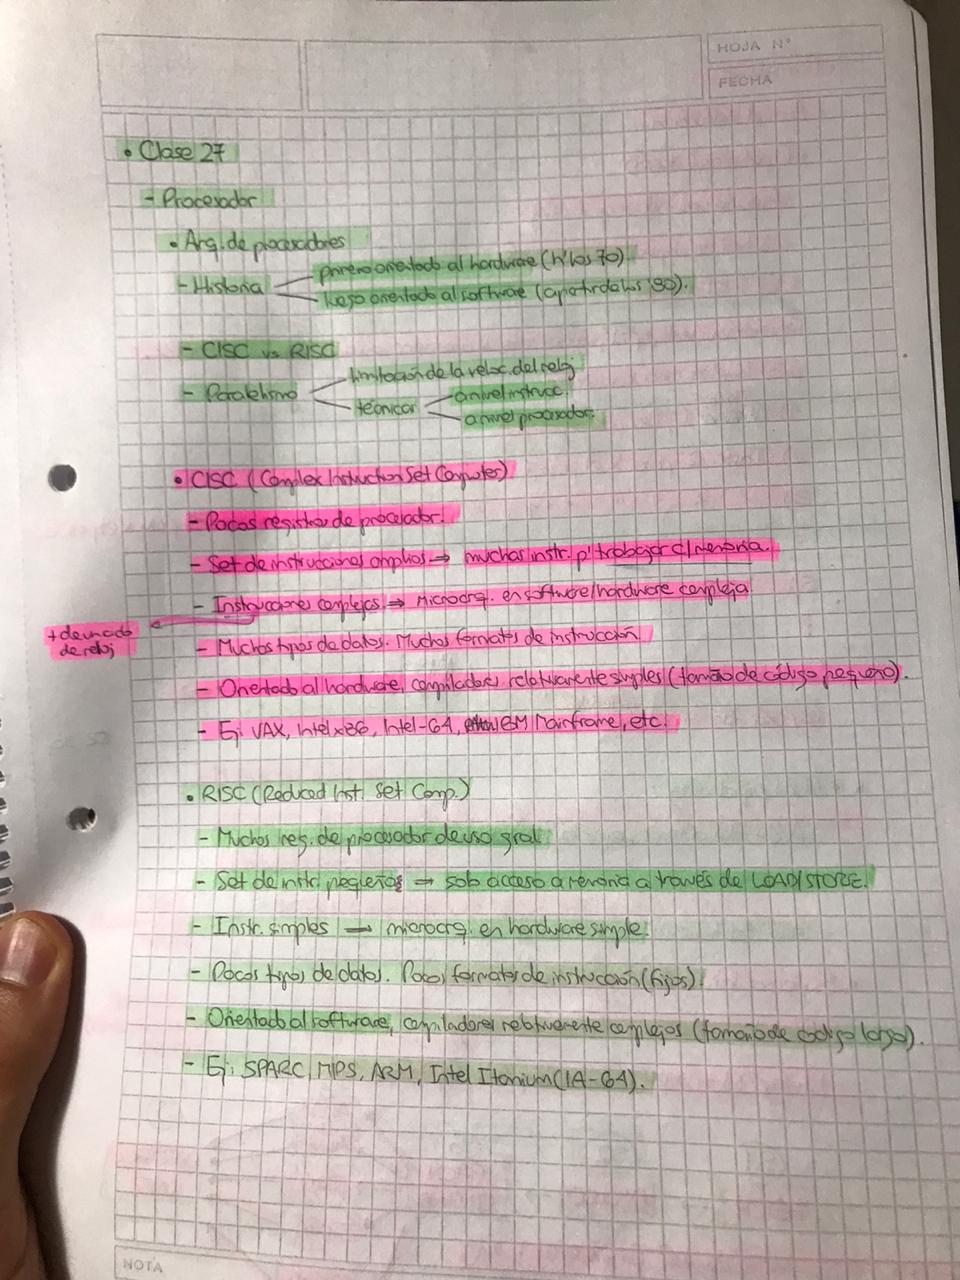 HOJA Nº
FECHA
• Clase 27
- Procesador
• Arq. de procesadores
- Historia
primero orientado al hardware (h' los 70)
luego orientado al software (a partir de los '80).
- CISC vs RISC
- Paralelismo
limitación de la veloc. del reloj
técnicas
a nivel instrucc.
a nivel procesador.
• CISC (Complex Instruction Set Computer)
- Pocos registros de procesador.
- Set de instrucciones amplios → muchas instr. p' trabajar c/ memoria.
- Instrucciones complejas → Microarq. en software/hardware compleja
+ de un ciclo
de reloj
- Muchos tipos de datos. Muchos formatos de instrucción
- Orientado al hardware, compiladores relativamente simples (tamaño de código pequeño).
- Ej: VAX, Intel x86, Intel-64, IBM Mainframe, etc.
• RISC (Reduced Inst. Set Comp.)
- Muchos reg. de procesador de uso gral.
- Set de instr. pequeños → solo acceso a memoria a través de LOAD/STORE.
- Instr. simples → microarq. en hardware simple.
- Pocos tipos de datos. Pocos formatos de instrucción (fijos).
- Orientado al software, compiladores relativamente complejos (tamaño de código largo).
- Ej: SPARC, MIPS, ARM, Intel Itanium (IA-64).
NOTA